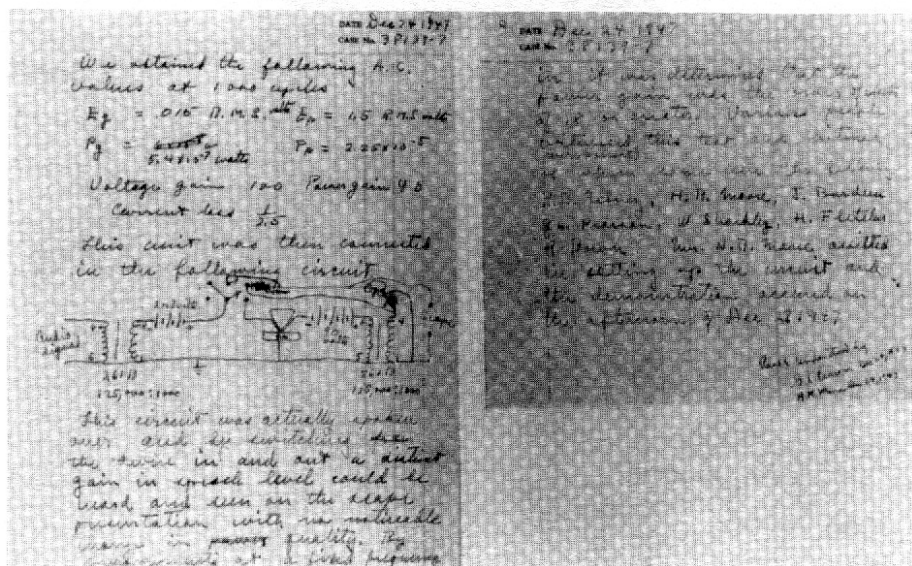 DATE Dec 24 1947
CASE No. 38139-7
We obtained the following A.C.
values at 1000 cycles
Eg = .015 R.M.S. volts Ep = 1.5 R.M.S. volts
Pg =
5.4 X 10-7 watts Pp = 2.25 X 10-5
Voltage gain 100 Power gain 40
Current loss 1/2.5
This unit was then connected
in the following circuit
Audio
signal
261 B
125,000:1000
261 B
125,000:1000
This circuit was actually spoken
over and by switching the
the device in and out a distinct
gain in speech level could be
heard and seen on the scope
presentation with no noticeable
change in quality. By
measurements at a fixed frequency
DATE Dec 24 1947
CASE No. 38139-7
in it was determined that the
power gain was the order of
or greater. Various people
witnessed this test and
of whom some were
H.R. Moore, J. Bardeen
G.L. Pearson, W. Shockley, H. Fletcher
Mr. H.R. Moore assisted
in setting up the circuit and
the demonstration occurred on
the afternoon of Dec 23 1947
Read & understood by
G.L. Pearson Dec
H.R. Moore Dec